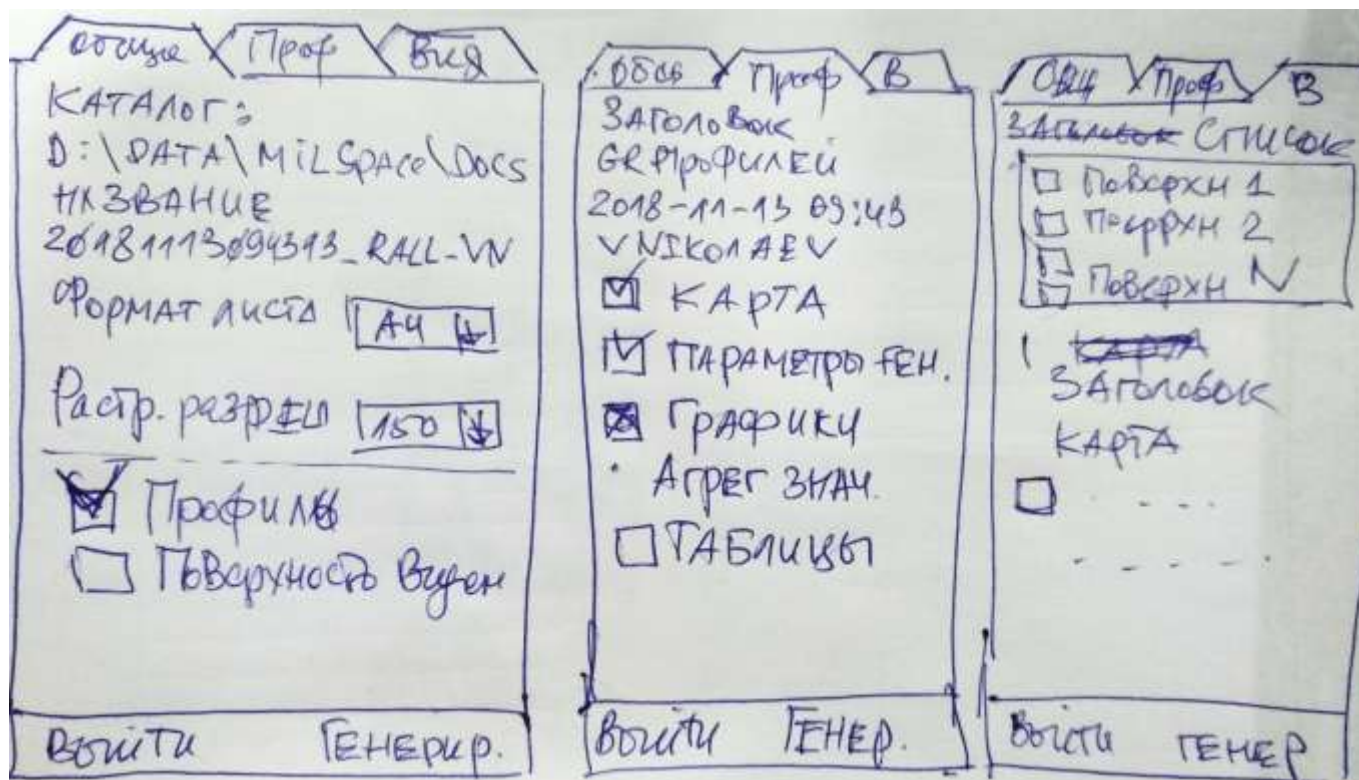 Общие Проф Вид
КАТАЛОГ:
D:\DATA\MilSpace\Docs
НАЗВАНИЕ
20181113094313_RALL-VN
Формат листа А4
Растр. разреш 150
Профиль
Поверхность виден
Выйти Генерир.
Общ Проф В
ЗАГОЛОВОК
GR Профилей
2018-11-13 09:43
VNIKOлAEV
КАРТА
ПАРАМЕТРЫ ГЕН.
Графики
Агрег знач.
ТАБлицы
Выйти ГЕНЕР.
Общ Проф В
ЗАГОЛОВОК Список
Поверхн 1
Поверхн 2
Поверхн N
КАРТА
ЗАГОЛОВОК
КАРТА
Выйти ГЕНЕР